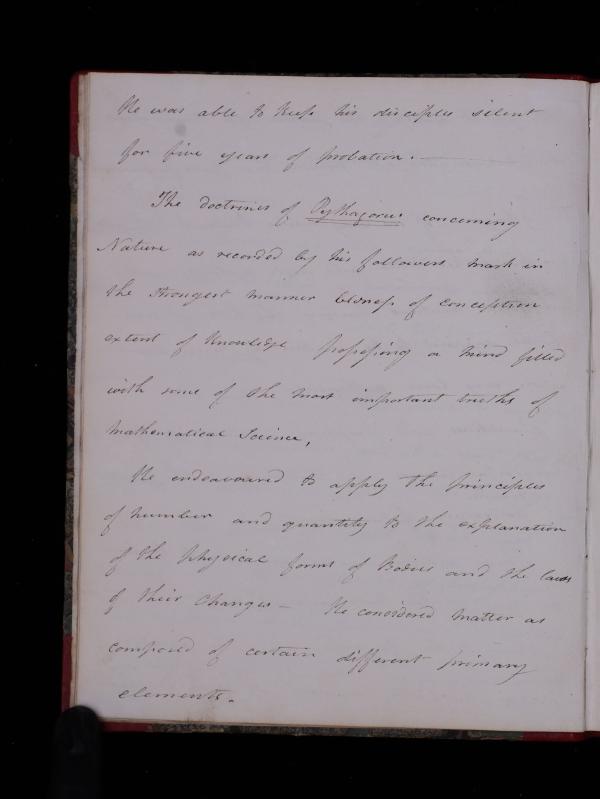 He was able to keep his disciples silent
for five years of probation. —
The doctrines of Pythagoras concerning
Nature as recorded by his followers mark in
the strongest manner boldness of conception
extent of knowledge possessing a mind filled
with some of the most important truths of
Mathematical Science,
He endeavoured to apply the principles
of number and quantity to the explanation
of the physical forms of Bodies and the laws
of their changes — He considered matter as
composed of certain different primary
elements.